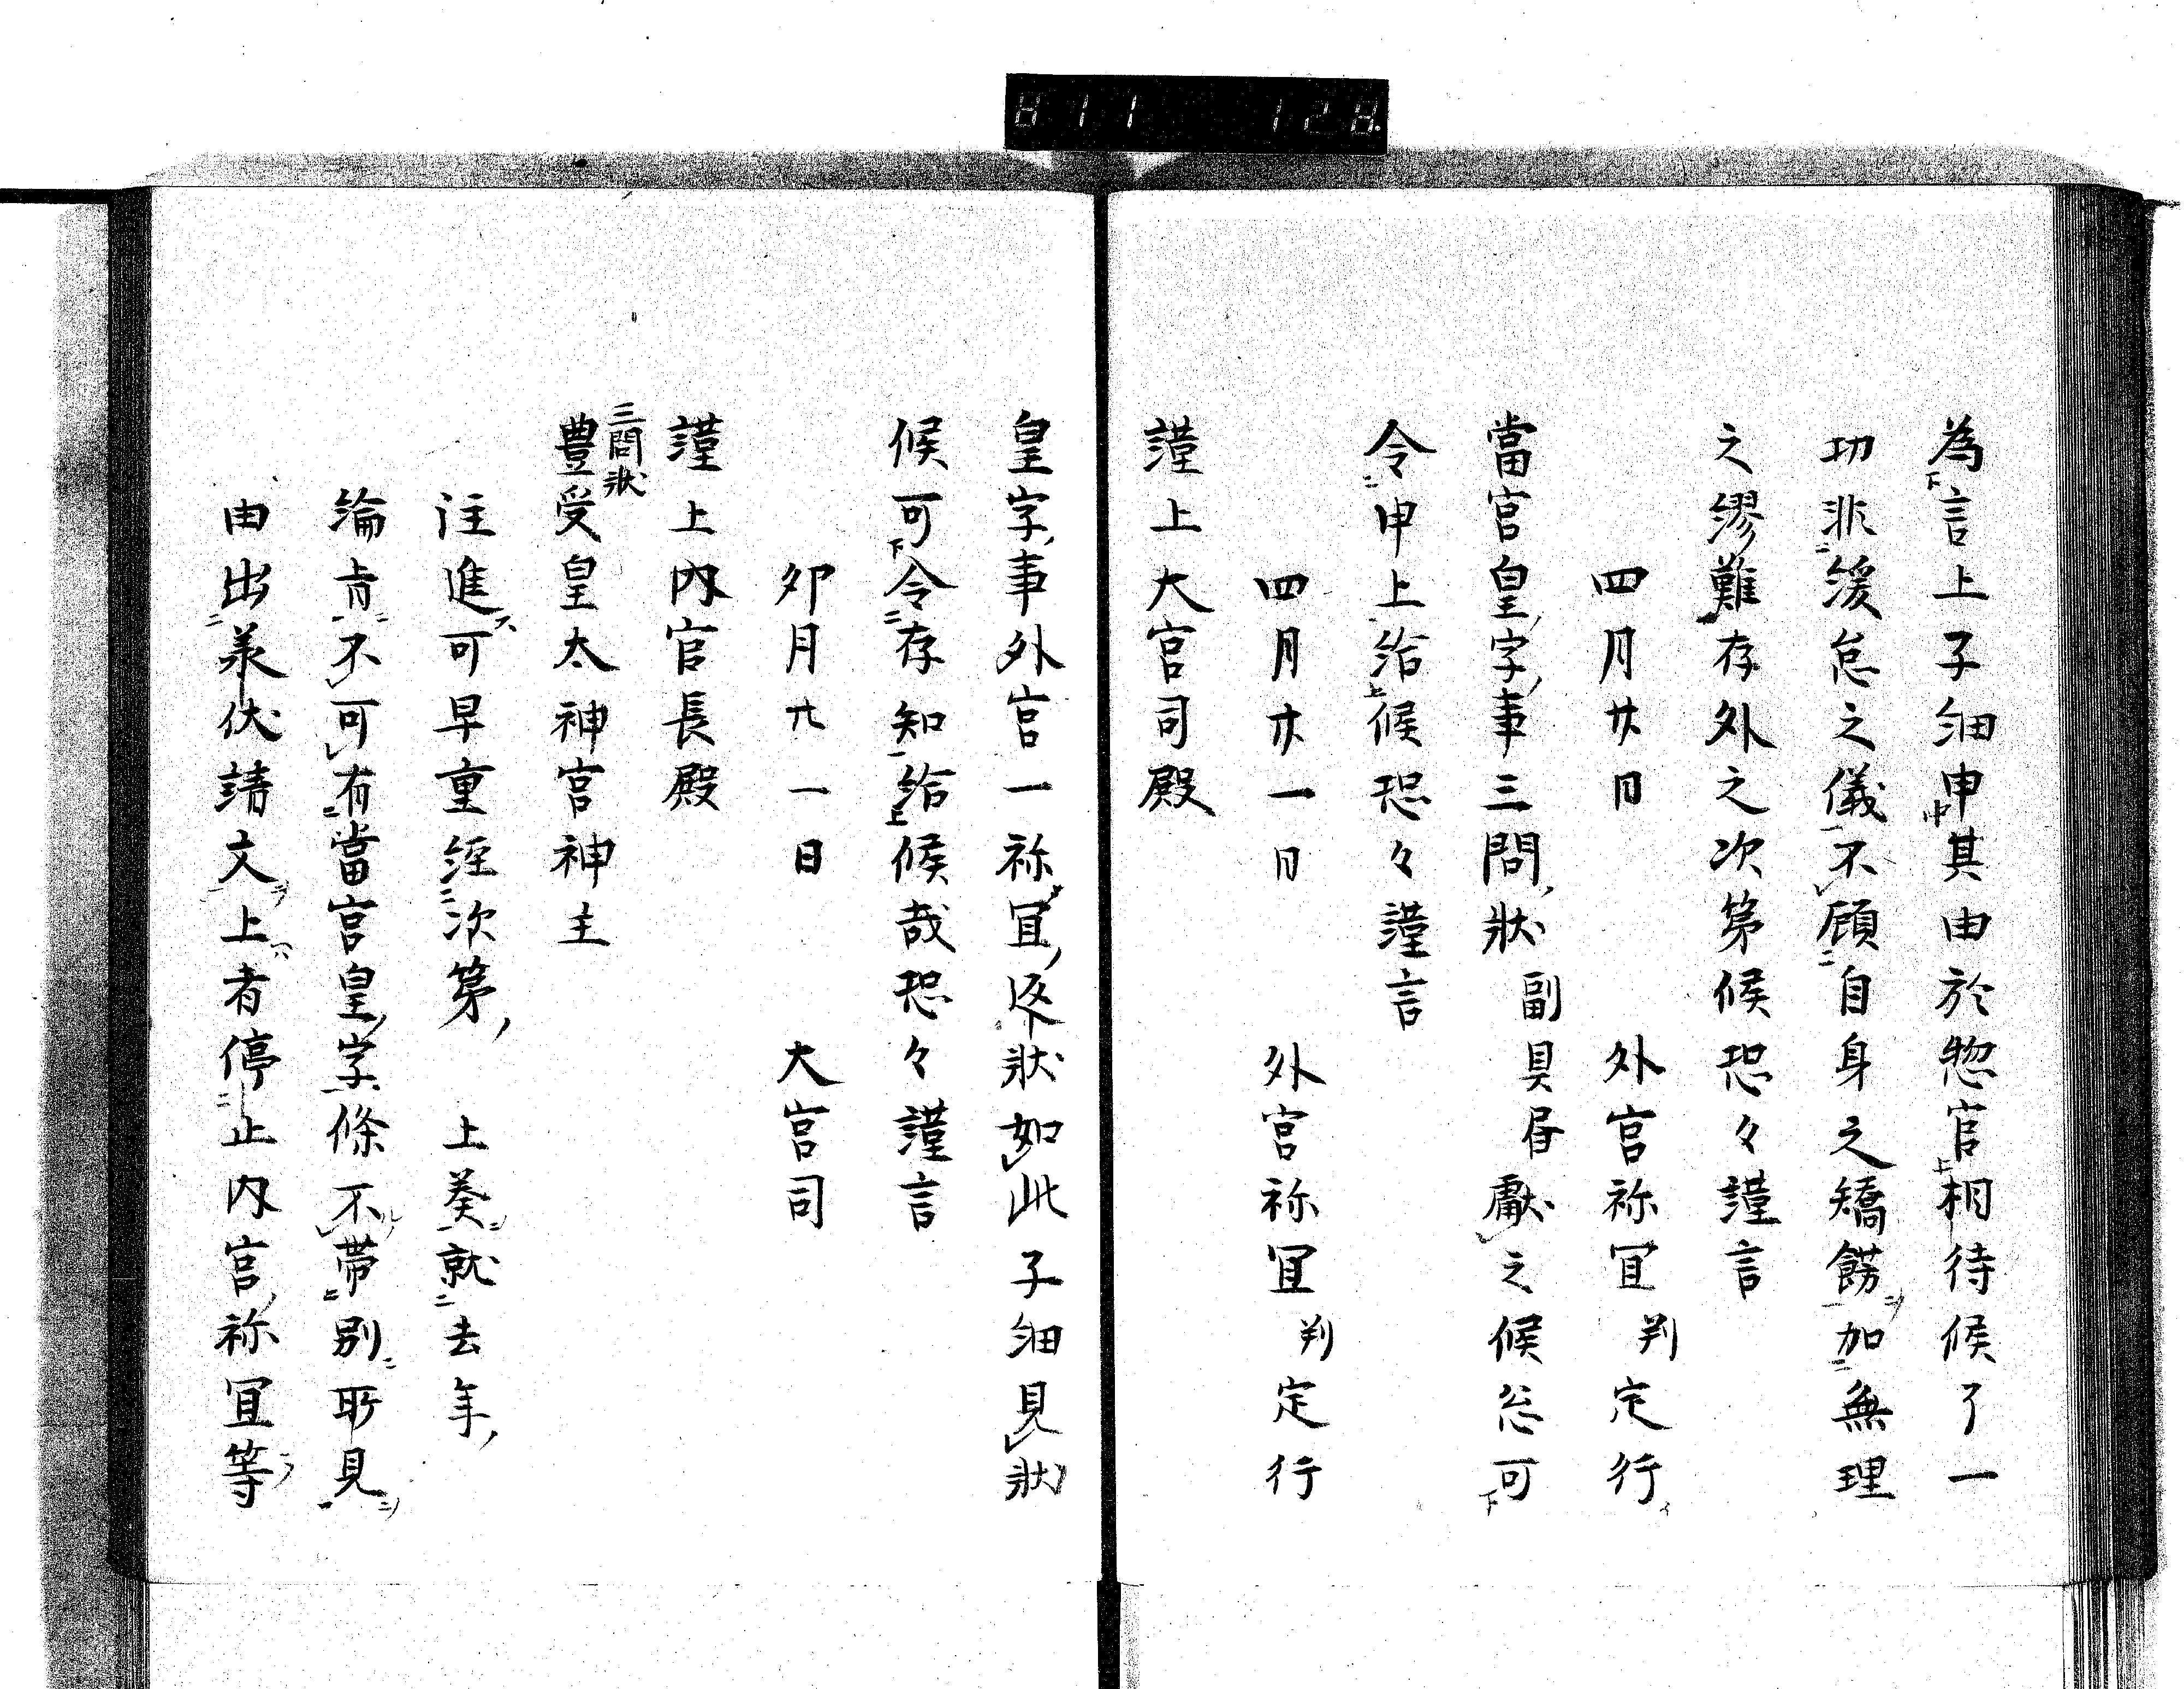 811 128
為言上子細申其由於惣官相待候了一
切非緩怠之儀不顧自身之矯餝加無理
之繆難存外之次第候恐々謹言
四月廿日 外宮祢冝判定行
當宮皇字事三問状副具書獻之候忩可
令申上給候恐々謹言
四月廿一日 外宮祢冝判定行
謹上大宮司殿
皇字事外宮一祢冝返状如此子細見状
候可令存知給候哉恐々謹言
卯月廿一日 大宮司
謹上内宮長殿
三問状
豊受皇太神宮神主
注進可早重経次第上奏就去年
綸旨不可有當宮皇字條不帯別所見
由出承伏請文上者停止内宮祢冝等